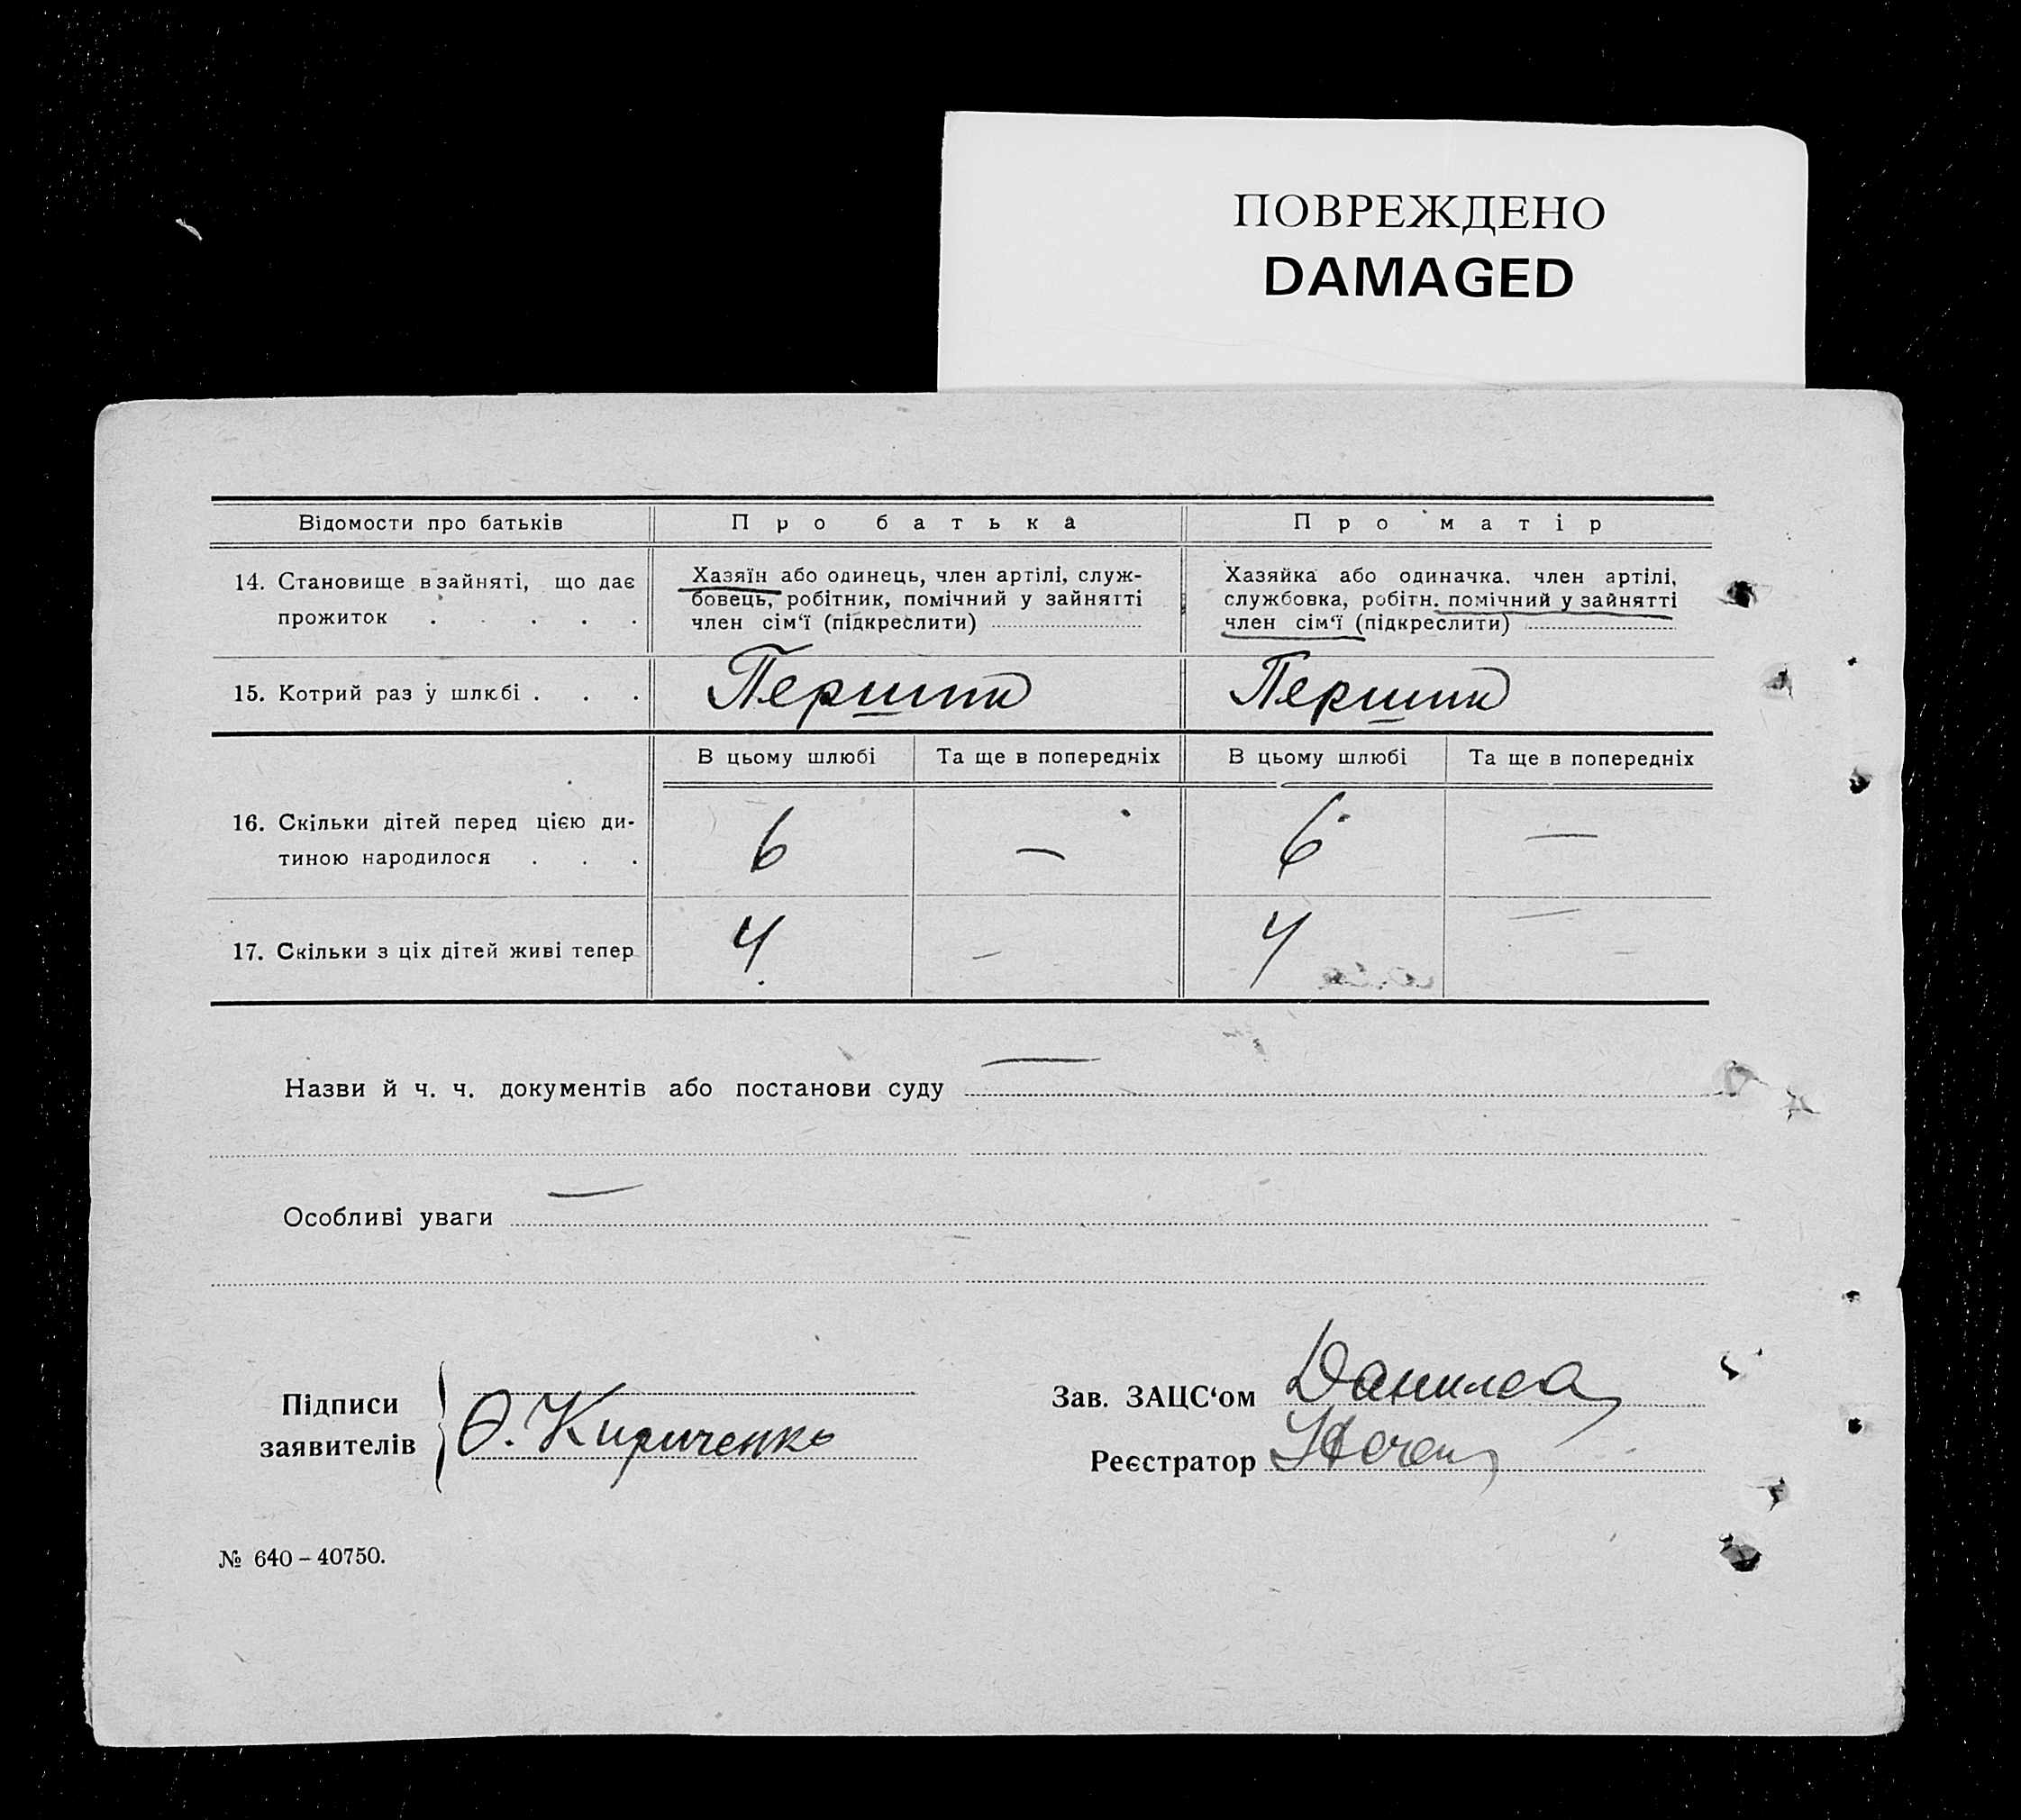 ПОВРЕЖДЕНО
DAMAGED
Відомости про батьків Про батька Про матір
14. Становище в зайняті, що дає прожиток . . . . .
Хазяїн або одинець, член артілі, служ-
бовець, робітник, помічний у зайнятті
член сім'ї (підкреслити)
Хазяйка або одиначка. член артілі,
службовка, робітн. помічний у зайнятті
член сім'ї (підкреслити)
15. Котрий раз у шлюбі . . . Перший Перший
В цьому шлюбі Та ще в попередніх В цьому шлюбі Та ще в попередніх
16. Скільки дітей перед цією ди-
тиною народилося . . . 6 — 6 —
17. Скільки з ціх дітей живі тепер 4 — 4 —
Назви й ч. ч. документів або постанови суду —
Особливі уваги —
Підписи
заявителів
О. Кириченко
Зав. ЗАЦС'ом
Реєстратор
№ 640 – 40750.